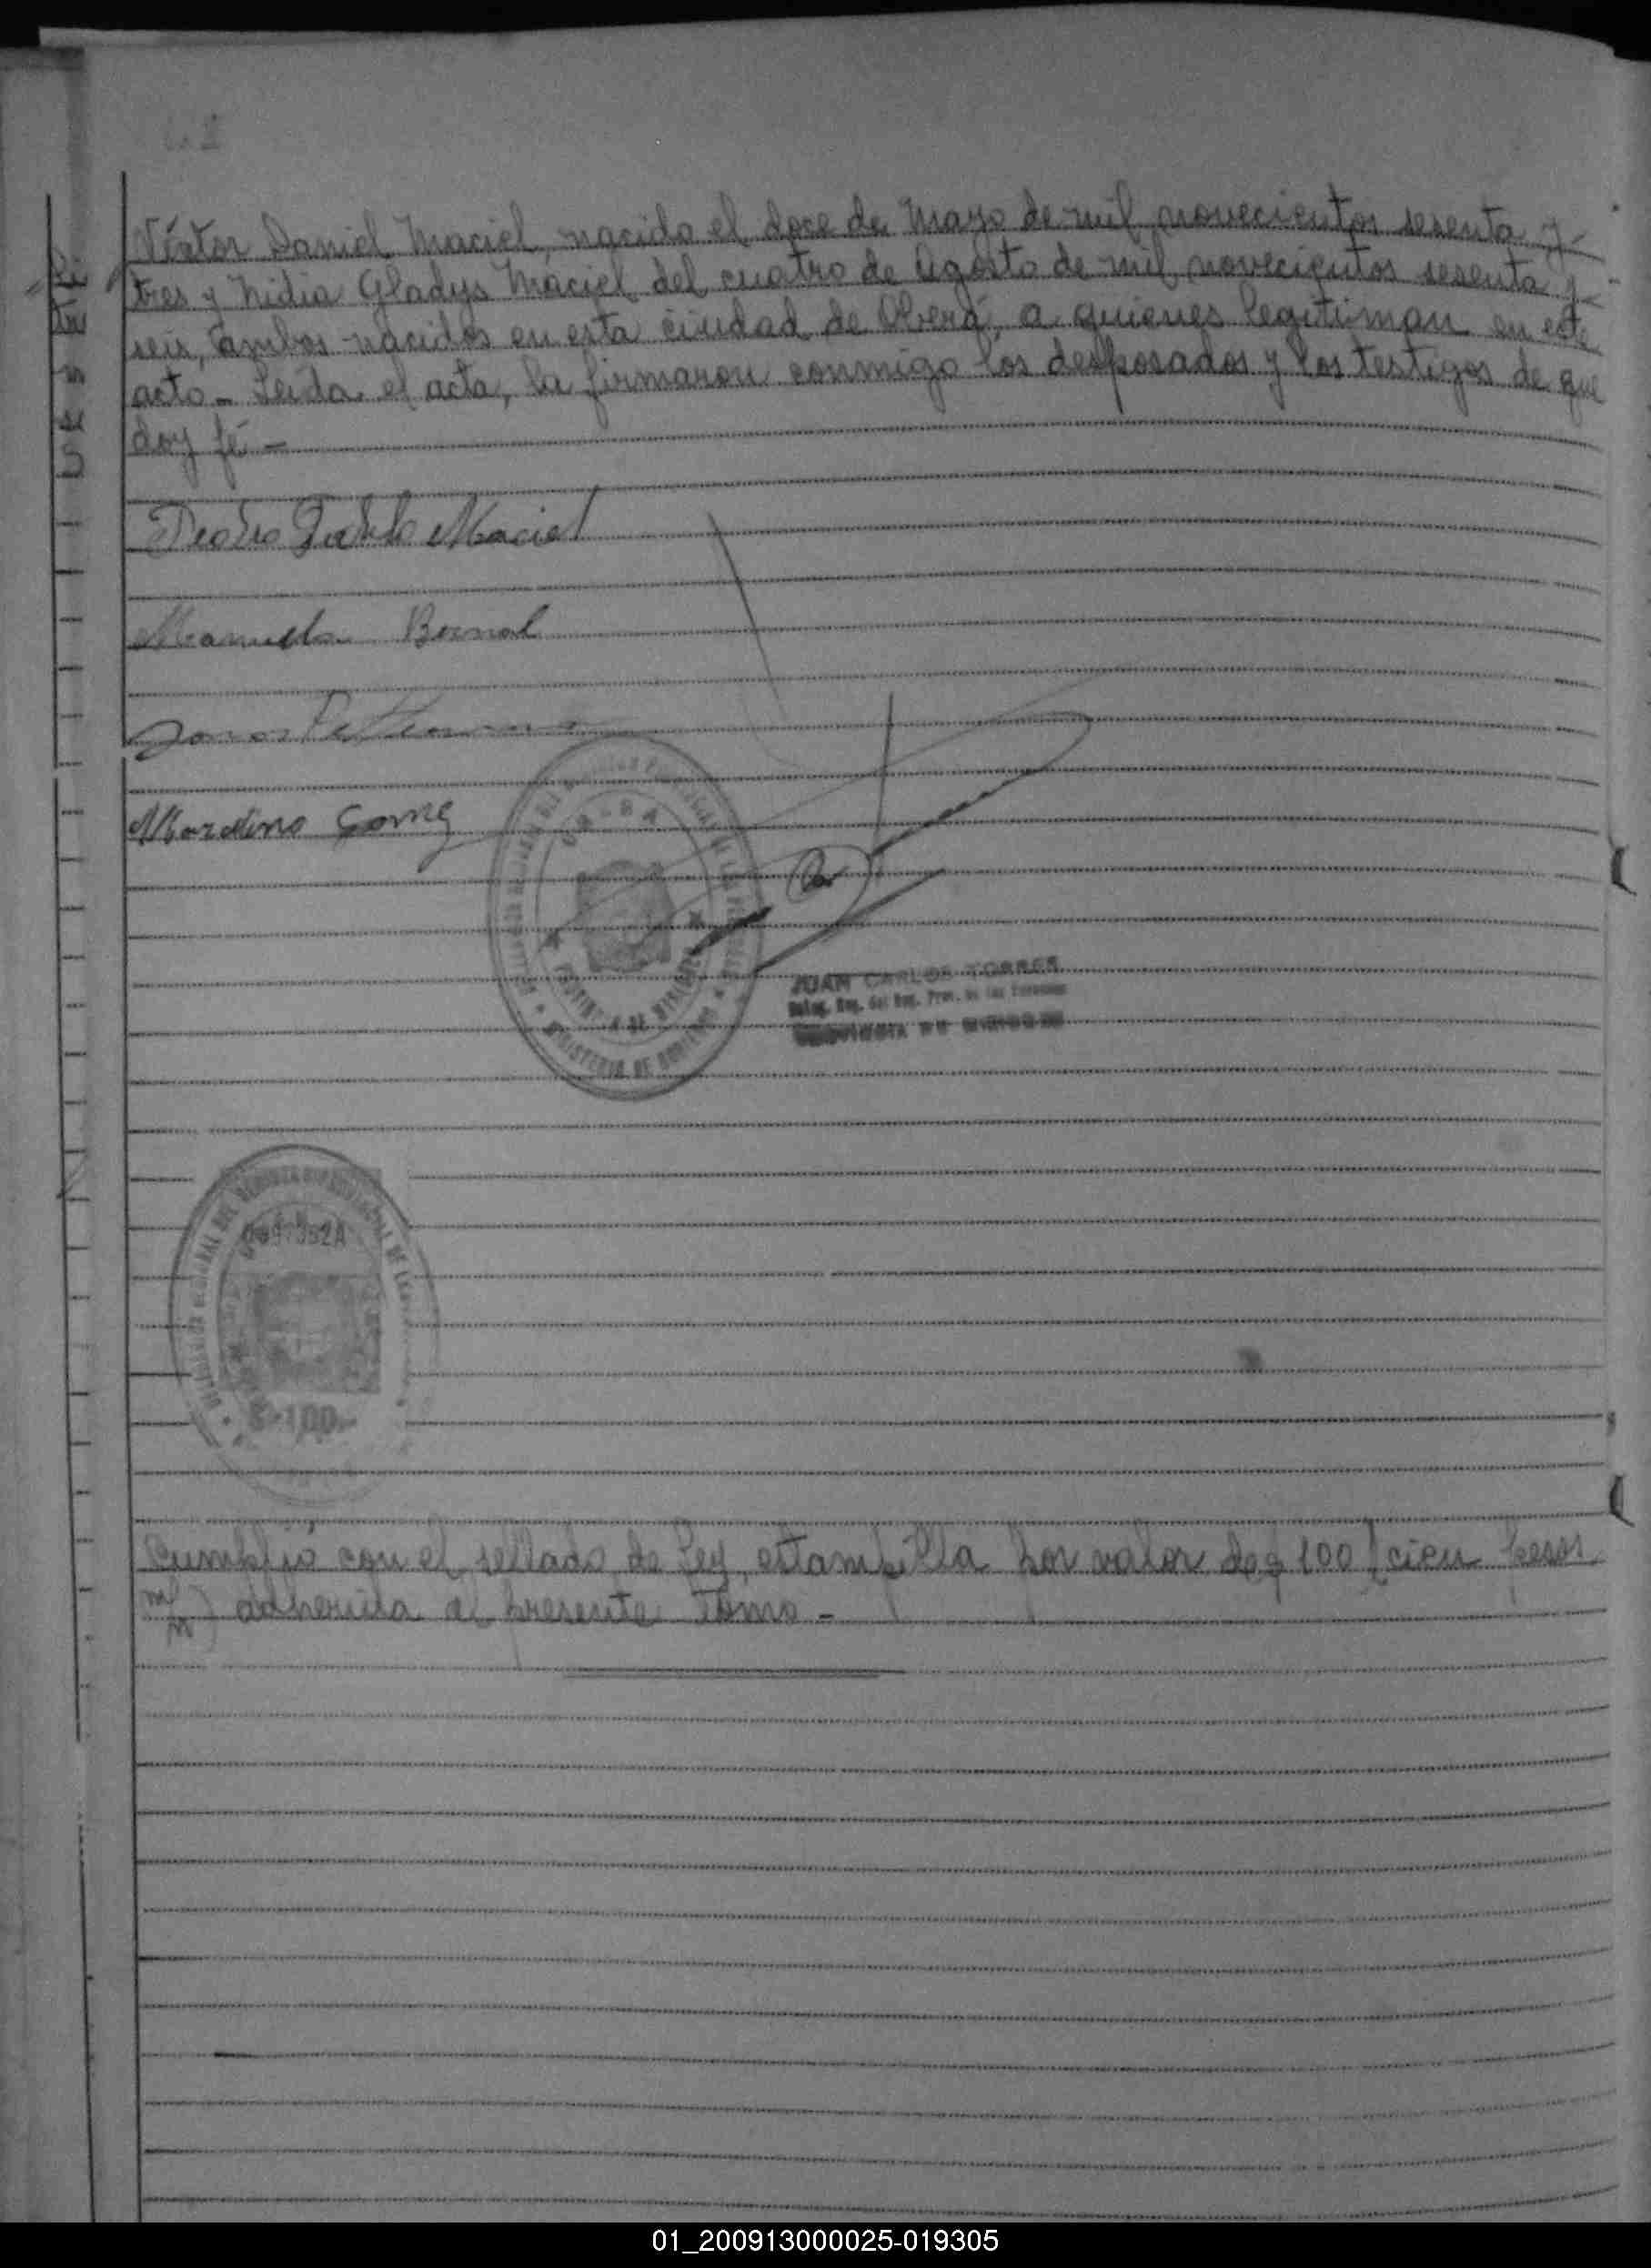 Víctor Daniel Maciel, nacido el doce de Mayo de mil novecientos sesenta y
tres y Nidia Gladys Maciel del cuatro de Agosto de mil novecientos sesenta y
seis, ambos nacidos en esta ciudad de Oberá, a quienes legitiman en este
acto.- Leída el acta, la firmaron conmigo los desposados y los testigos de que
doy fé -
Pedro Pablo Maciel
Manuela Bernal
Marcelino Gomez
OBERA
PROVINCIA DE MISIONES
MINISTERIO DE GOBIERNO
JUAN CARLOS TORRES
Deleg. Reg. del Reg. Prov. de las Personas
PROVINCIA DE MISIONES
$ 100.-
Cumplió con el sellado de Ley, estampilla por valor de $ 100 (cien pesos
m/n) adherida al presente Tomo -
01_200913000025-019305